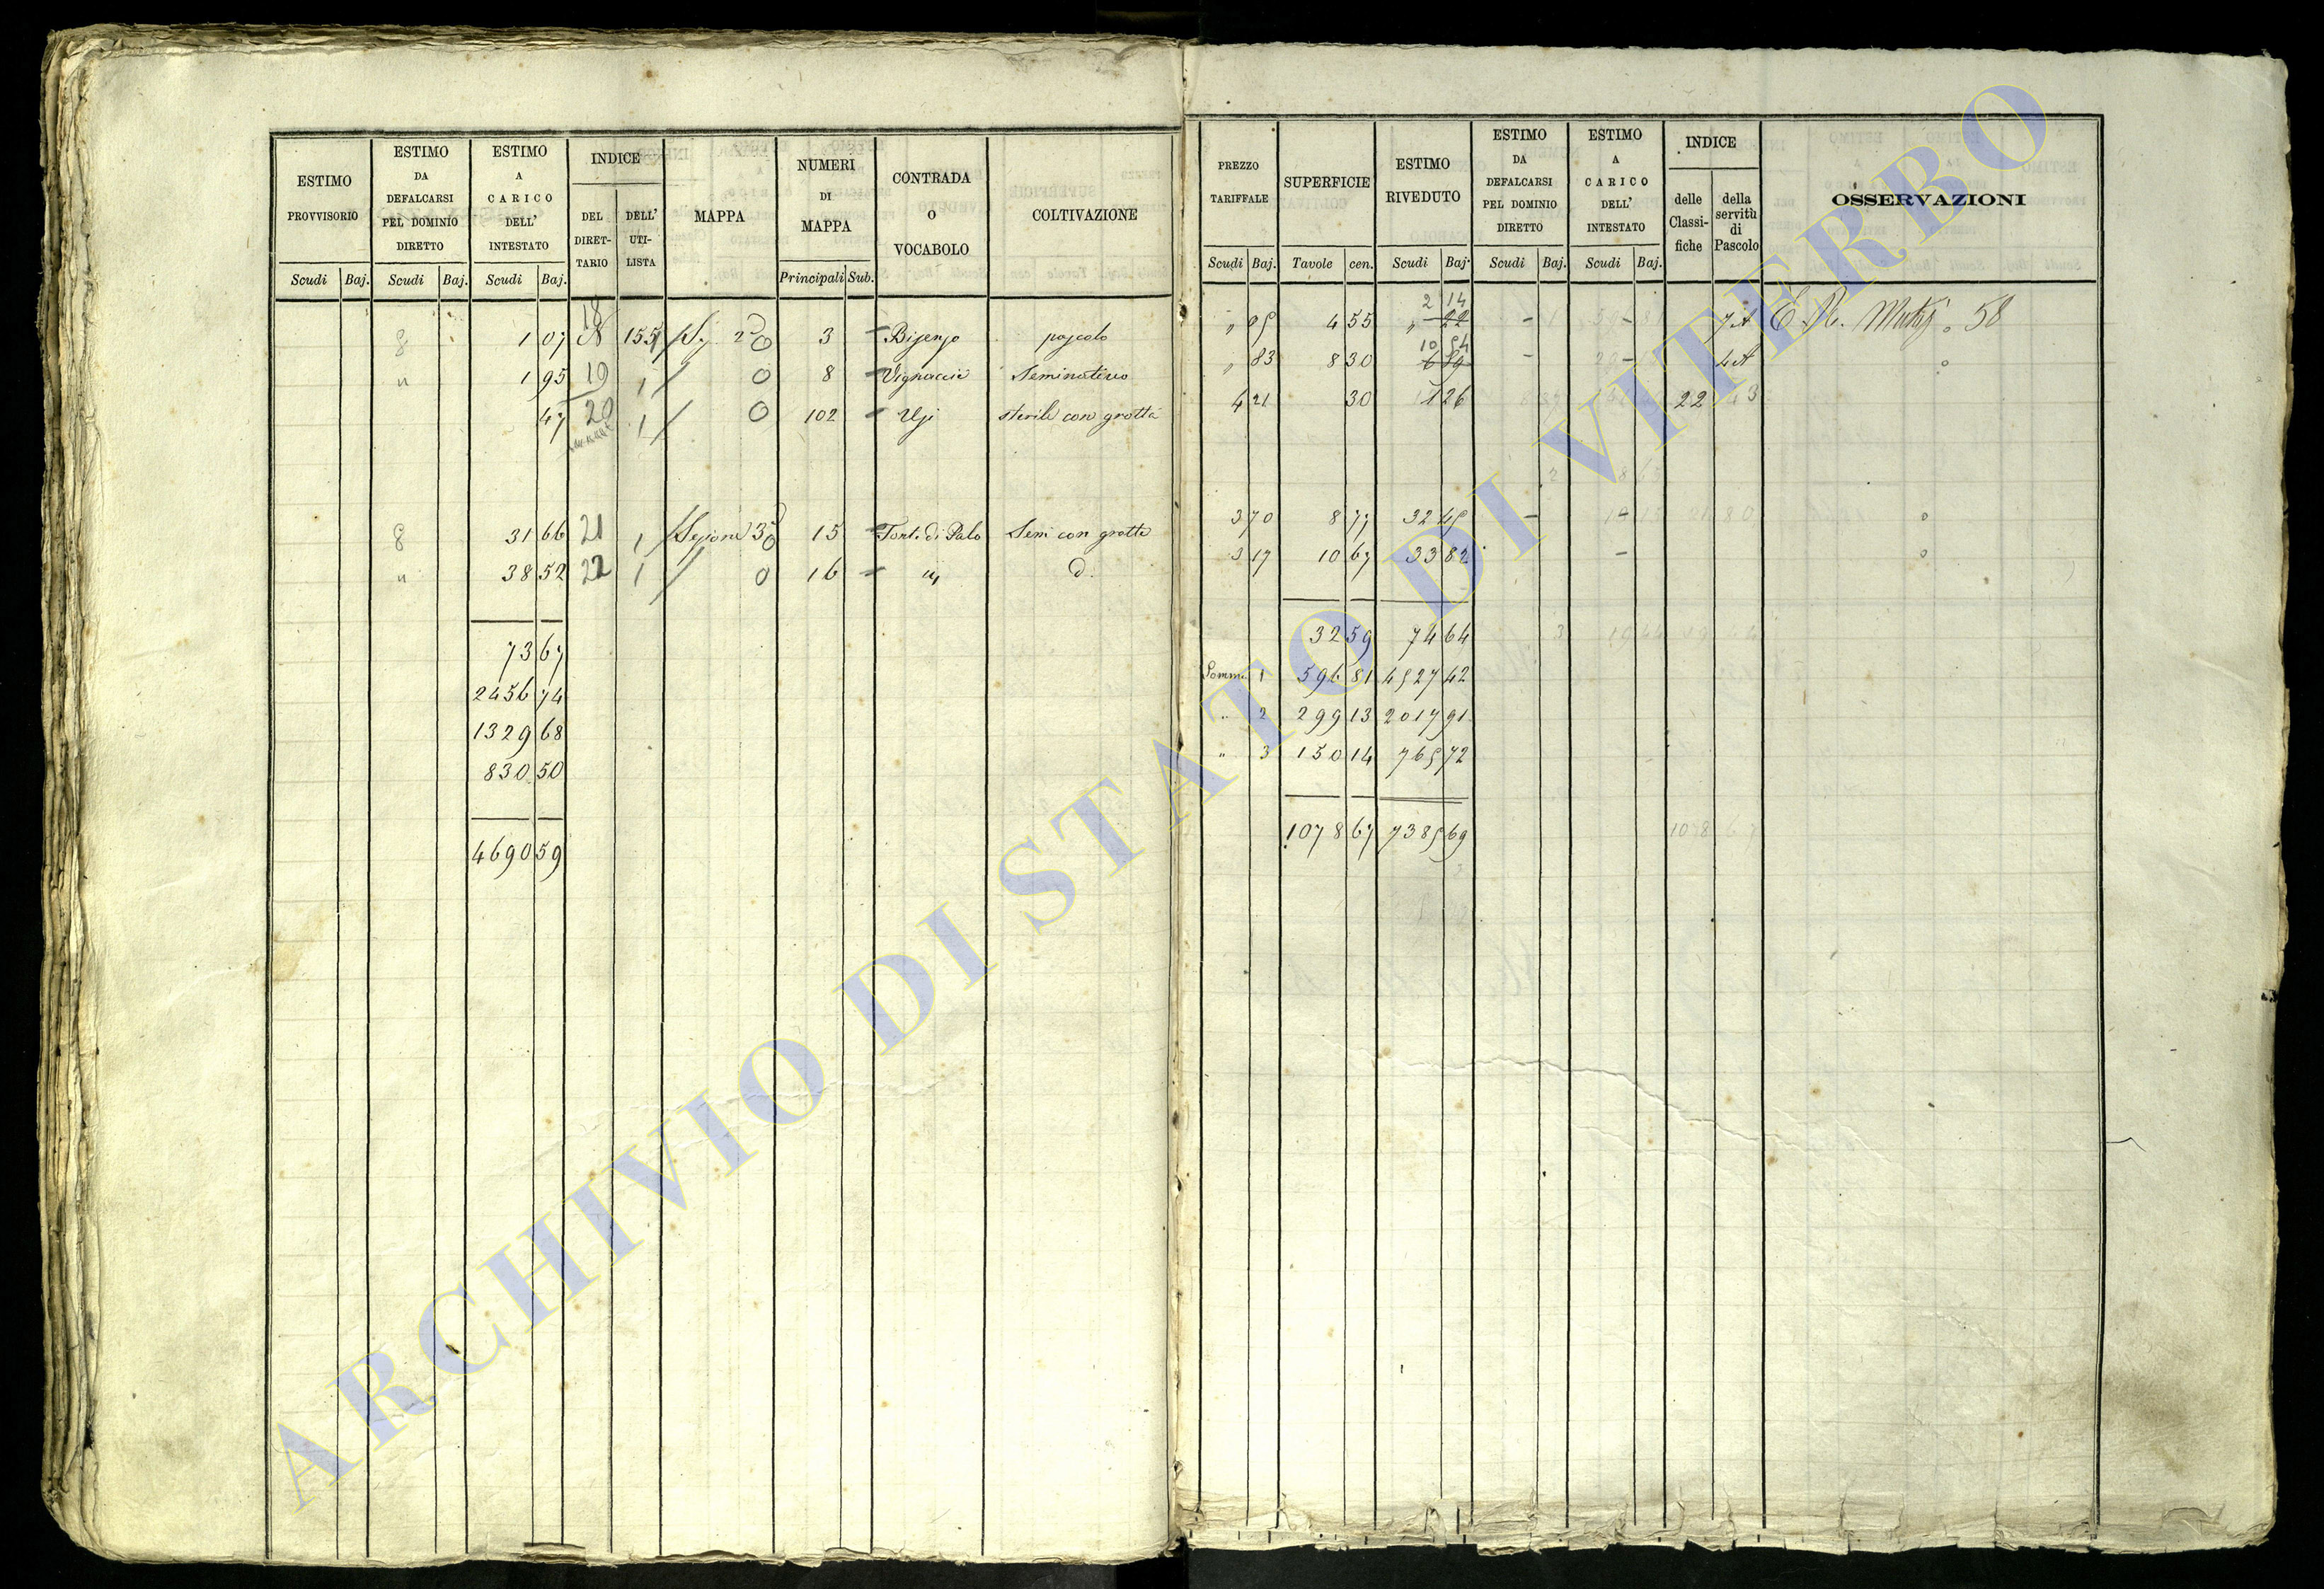 ESTIMO PROVVISORIO
Scudi Baj.
ESTIMO DA DEFALCARSI PEL DOMINIO DIRETTO
Scudi Baj.
ESTIMO A CARICO DELL' INTESTATO
Scudi Baj.
INDICE
DEL DIRET-
TARIO
DELL' UTI-
LISTA
MAPPA
NUMERI DI MAPPA
Principali Sub.
CONTRADA O VOCABOLO
COLTIVAZIONE
1 07 18 155 2 0 3 pascolo
" 1 95 19 1 0 8 Seminativo
47 20 1 0 102 sterile con grotta
31 66 21 1 Sezione 3 0 15 Font. di Palo Sem con grotte
" 38 52 22 1 0 16 d.
73 67
2456 74
1329 68
830 50
4690 59
PREZZO TARIFFALE
Scudi Baj.
SUPERFICIE
Tavole cen.
ESTIMO RIVEDUTO
Scudi Baj.
ESTIMO DA DEFALCARSI PEL DOMINIO DIRETTO
Scudi Baj.
ESTIMO A CARICO DELL' INTESTATO
Scudi Baj.
INDICE
delle Classi-
fiche
della servitù di Pascolo
OSSERVAZIONI
2 14
4 55 " 22 - - 7 A 58
10 54
" 83 8 30 6 89 - - 4 A
4 21 30 1 26 22
3 70 8 77 32 45 - -
3 17 10 67 33 82 -
32 59 74 64
Somma 1 596 81 4527 42
" 2 299 13 2017 91
" 3 150 14 765 72
1078 67 7385 69
ARCHIVIO DI STATO DI VITERBO